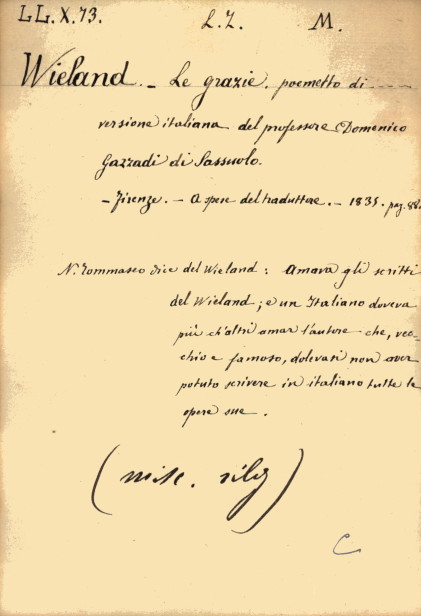 LL.X.73. L.Z. M.
Wieland. - Le grazie. poemetto di ----
versione italiana del professore Domenico
Gazzadi di Sassuolo.
- Firenze. - A spese del traduttore. - 1835. pag. 88.
N. Tommaseo dice del Wieland: Amava gli scritti
del Wieland; e un Italiano doveva
più ch'altri amar l'autore che, vec-
chio e famoso, dolevasi non aver
potuto scrivere in italiano tutte le
opere sue.
(misc. rileg)
C